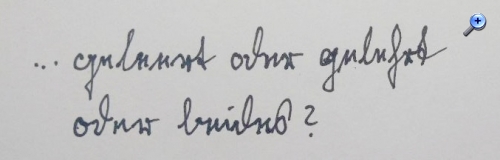 ... gelernt oder gelehrt
oder beides?